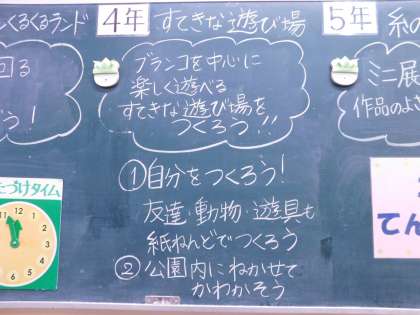 くるくるランド
回る
う!
たづけタイム
12
1
2
3
4
5
6
7
8
9
10
11
4年 すてきな遊び場
ブランコを中心に
楽しく遊べる
すてきな遊び場を
つくろう!!!
①自分をつくろう!
友達・動物・遊具も
紙ねんどでつくろう
②公園内にねかせて
かわかそう
5年 糸の
ミニ展
作品のよさ
てん